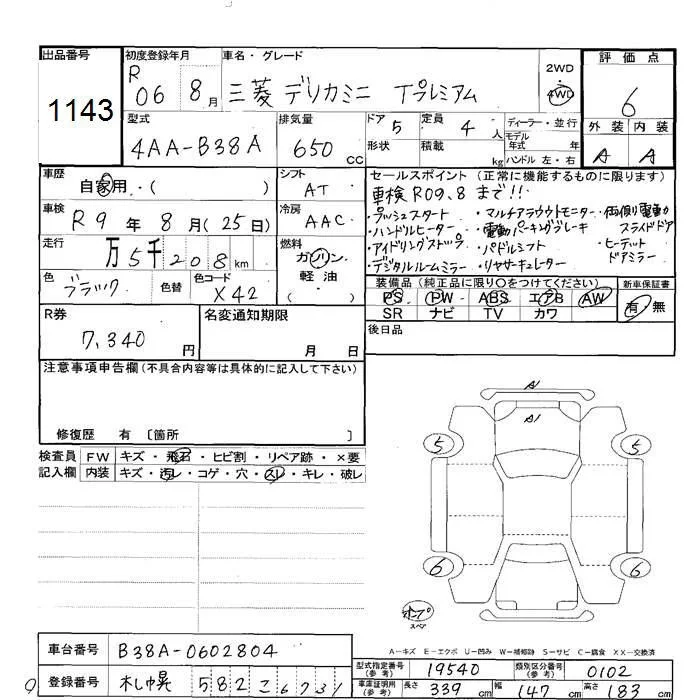 出品番号 1143
初度登録年月 R 06 8月
車名・グレード 三菱 デリカミニ Tプレミアム
2WD・4WD
評価点 6
外装 A 内装 A
型式 4AA-B38A
排気量 650 cc
ドア 5 形状
定員 4 人 積載 kg
ディーラー・並行
モデル年式 年式
ハンドル 左・右
車歴 自家用・( )
シフト AT
車検 R 9 年 8 月 (25日)
冷房 AAC
走行 万 5 千 208 km
燃料 ガソリン 軽油 ( )
色 ブラック 色替 色コード X42
セールスポイント (正常に機能するものに限ります)
車検 R09.8 まで!!
・プッシュスタート ・マルチアラウンドモニター ・両側電動スライドドア
・ハンドルヒーター ・電動パーキングブレーキ
・アイドリングストップ ・パドルシフト ・ヒーテットドアミラー
・デジタルルームミラー ・リヤサーキュレーター
装備品 (純正品に限り○をつけてください) 新車保証書
PS PW ABS エアB AW 有・無
SR ナビ TV カワ
R券 7,340 円
名変通知期限 月 日
後日品
注意事項申告欄 (不具合内容等は具体的に記入して下さい)
修復歴 有 〔箇所 〕
検査員記入欄
FW キズ・飛石・ヒビ割・リペア跡・×要
内装 キズ・汚レ・コゲ・穴・スレ・キレ・破レ
A
A1
5 5
6 6
スペア
A-キズ E-エクボ U-凹み W-補修跡 S-サビ C-腐食 XX-交換済
車台番号 B38A-0602804
登録番号 札幌 582
型式指定番号 (参考) 19540 類別区分番号 (参考) 0102
車庫証明用 (参考) 長さ 339 cm 幅 147 cm 高さ 183 cm